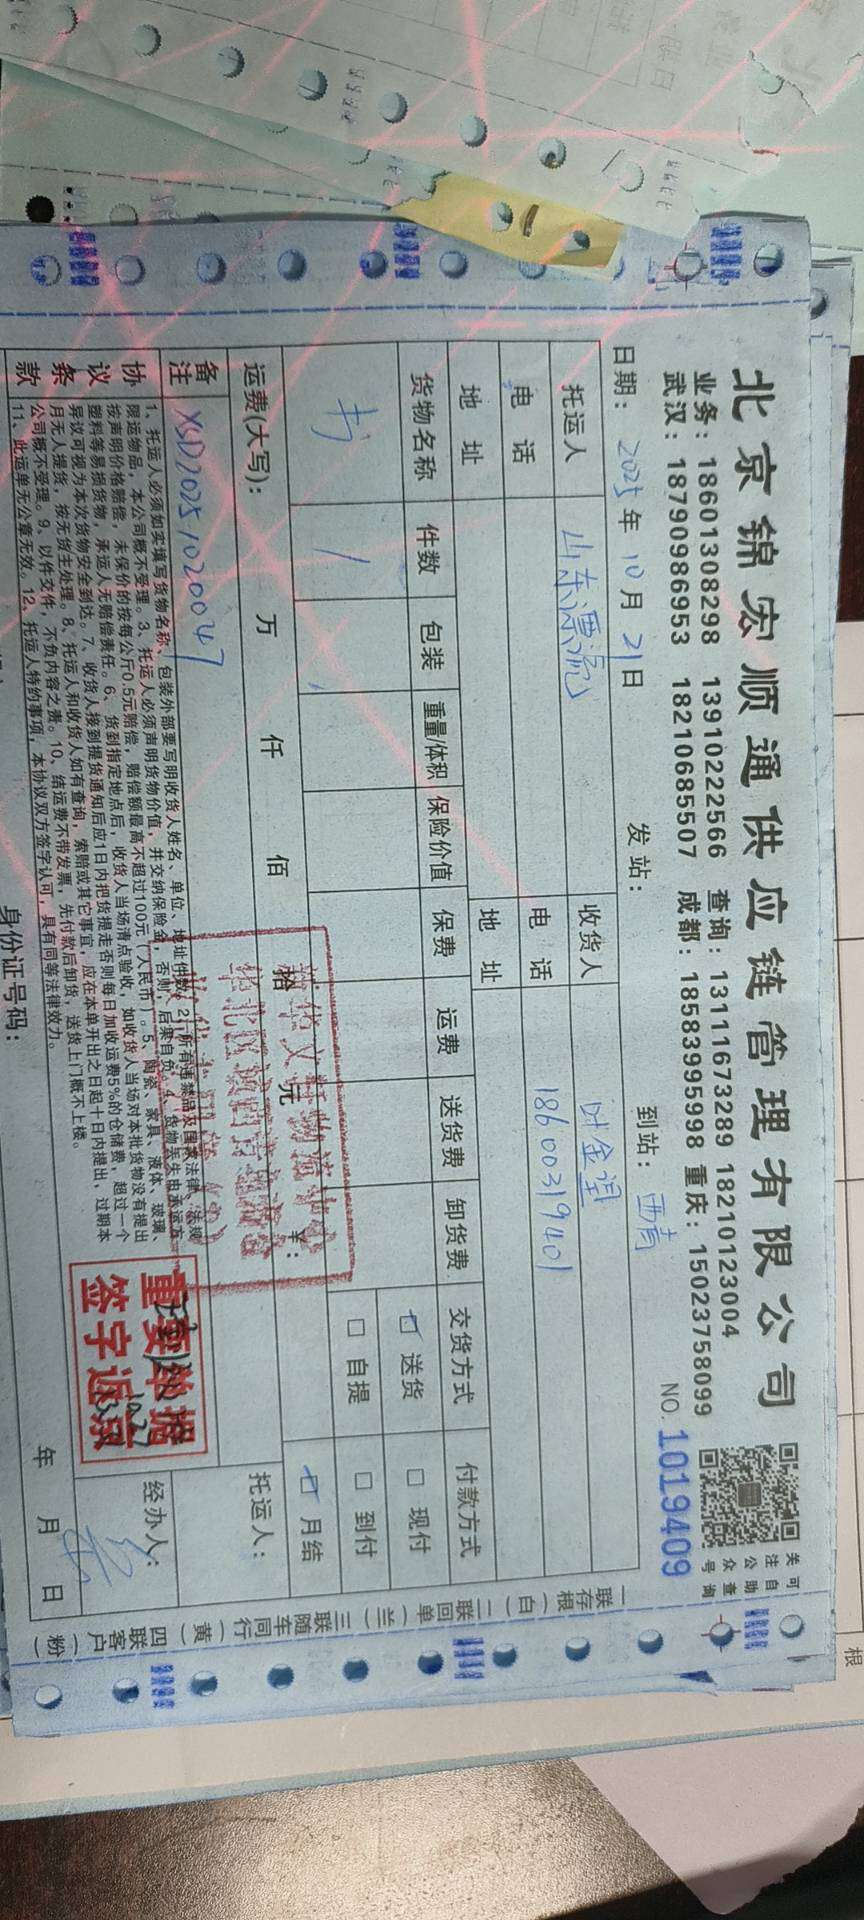 北京锦宏顺通供应链管理有限公司
业务：18601308298 13910222566 查询：13111673289 18210123004
武汉：18790986953 18210685507 成都：18583995998 重庆：15023758099
关注公众号
可自助查询
日期：2025年10月21日 发站： 到站：西南
NO. 1019409
托运人 山东漂流 收货人 叶金
电话 电话 18600319401
地址 地址
货物名称 件数 包装 重量/体积 保险价值 保费 运费 送货费 卸货费 交货方式 付款方式
书 1 送货 现付
自提 到付
运费(大写)： 万 仟 佰 拾 元 ¥： 月结
备注 XSD20251020047 托运人：
协议条款
1、托运人必须如实填写货物名称、包装外部要写明收货人姓名、单位、地址件数。2、所有违禁品及国家法律、法规
限运物品，本公司概不受理。3、托运人必须声明货物价值，并交纳保险金，否则，后果自负。4、货物丢失由承运方
按声明价格赔偿，未保价的按每公斤0.5元赔偿，赔偿额最高不超过100元（人民币）。5、陶瓷、家具、液体、玻璃、
塑料等易损货物，承运人无赔偿责任。6、货到指定地点后，收货人当场清点验收，如收货人当场对本批货物没有提出
异议可视为本次货物安全到达。7、收货人接到提货通知后应1日内把货提走否则每日加收运费5%的仓储费，超过一个
月无人提货，按无货主处理。8、托运人和收货人如有查询，索赔或其它事宜，应在本单开出之日起十日内提出，过期本
公司概不受理。9、以件交件，不负内容之责。10、结运费不带发票，先付款后卸货，送货上门概不上楼。
11、此运单无公章无效。12、托运人特约事项，本协议双方签字认可，具有同等法律效力。
重要单据
签字返京
经办人：
身份证号码： 年 月 日
一联存根（白） 二联回单（兰） 三联随车同行（黄） 四联客户（粉）
根